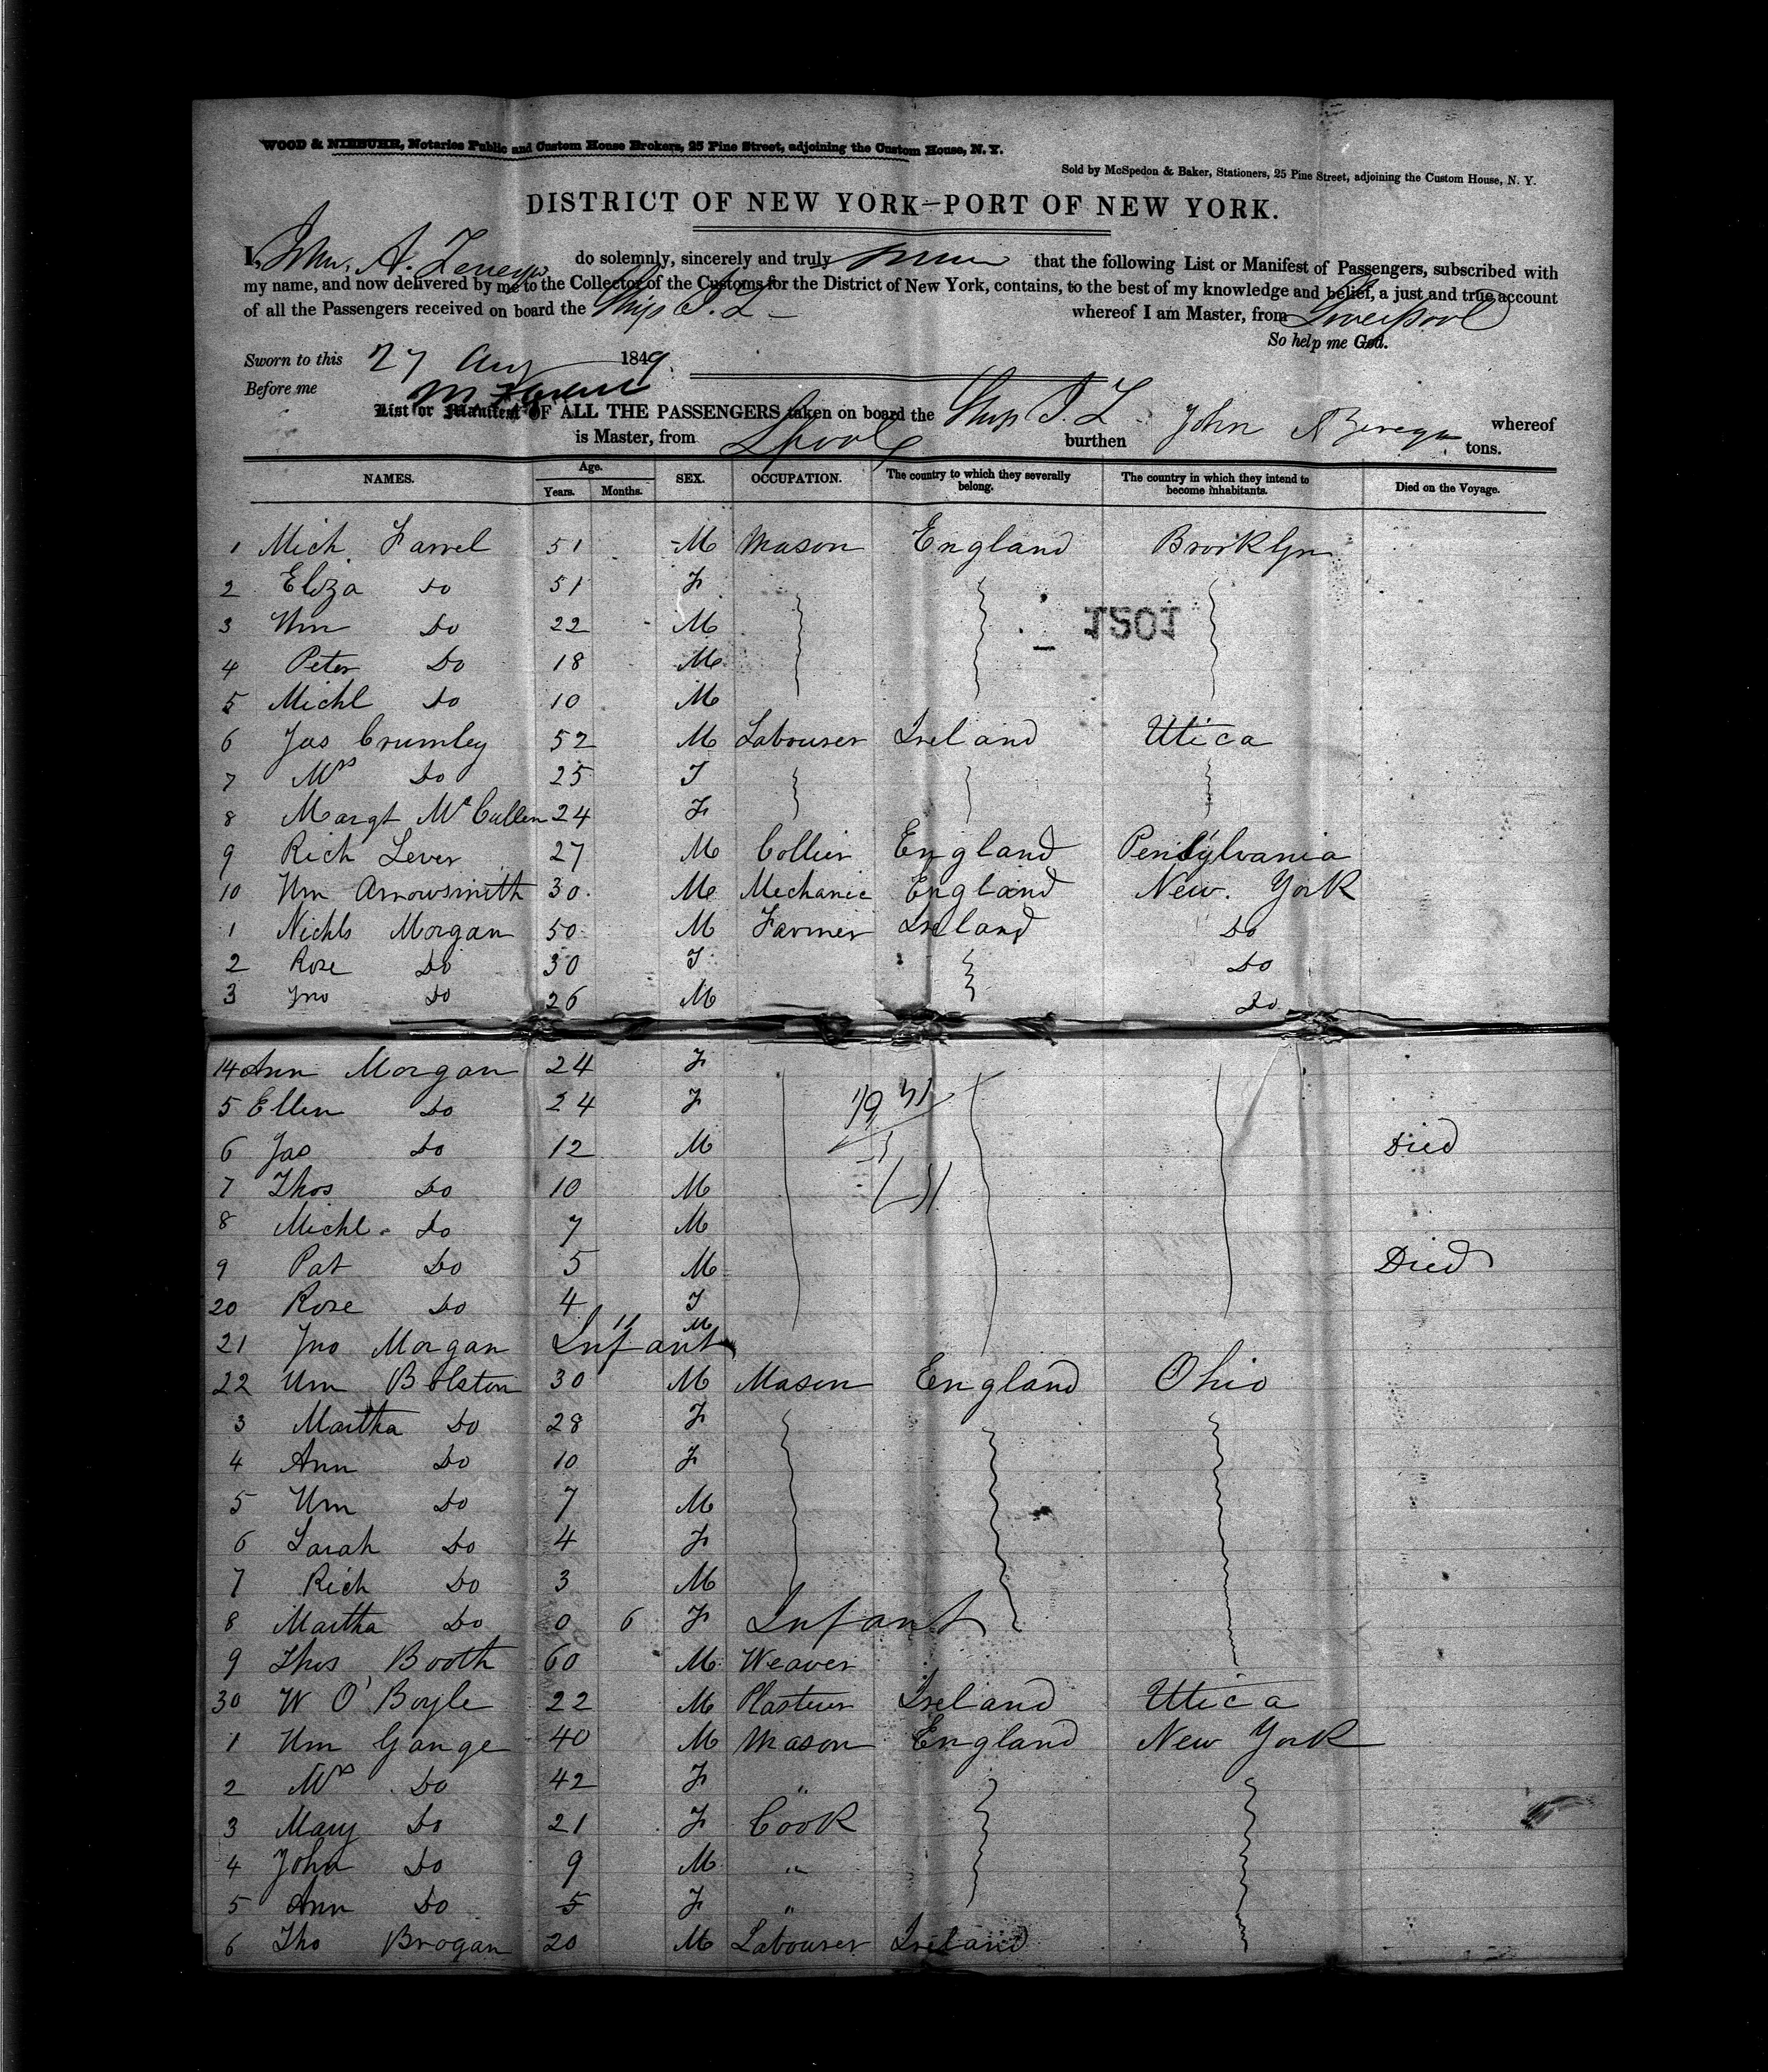 WOOD & NIEBUHR, Notaries Public and Custom House Brokers, 25 Pine Street, adjoining the Custom House, N. Y.
Sold by McSpedon & Baker, Stationers, 25 Pine Street, adjoining the Custom House, N. Y.
DISTRICT OF NEW YORK—PORT OF NEW YORK.
I, A. do solemnly, sincerely and truly that the following List or Manifest of Passengers, subscribed with
my name, and now delivered by me to the Collector of the Customs for the District of New York, contains, to the best of my knowledge and belief, a just and true account
of all the Passengers received on board the Ship I. Z whereof I am Master, from Liverpool
So help me God.
Sworn to this 27 Aug 1849
Before me
List or Manifest OF ALL THE PASSENGERS taken on board the Ship I. Z John A whereof
is Master, from Lpool burthen tons.
NAMES. Age. Years. Months. SEX. OCCUPATION. The country to which they severally belong. The country in which they intend to become inhabitants. Died on the Voyage.
1 Mich Farrel 51 M Mason England Brooklyn
2 Eliza Do 51 F
3 Wm Do 22 M
1501
4 Peter Do 18 M
5 Michl Do 10 M
6 Jas Crumley 52 M Labourer Ireland Utica
7 Mrs Do 25 F
8 Margt McCullen 24 F
9 Rich Lever 27 M Collier England Pensylvania
10 Wm Arrowsmith 30 M Mechanic England New York
1 Nichls Morgan 50 M Farmer Ireland Do
2 Rose Do 30 F Do
3 Jno Do 26 M Do
14 Ann Morgan 24 F
5 Ellen Do 24 F
6 Jas Do 12 M Died
7 Thos Do 10 M
8 Michl Do 7 M
9 Pat Do 5 M Died
20 Rose Do 4 F
21 Jno Morgan Infant M
22 Wm Bolston 30 M Mason England Ohio
3 Martha Do 28 F
4 Ann Do 10 F
5 Wm Do 7 M
6 Sarah Do 4 F
7 Rich Do 3 M
8 Martha Do 0 6 F Infant
9 Thos Booth 60 M Weaver
30 W O'Boyle 22 M Plasterer Ireland Utica
1 Wm Gange 40 M Mason England New York
2 Mrs Do 42 F "
3 Mary Do 21 F Cook
4 John Do 9 M "
5 Ann Do 5 F "
6 Tho Brogan 20 M Labourer Ireland